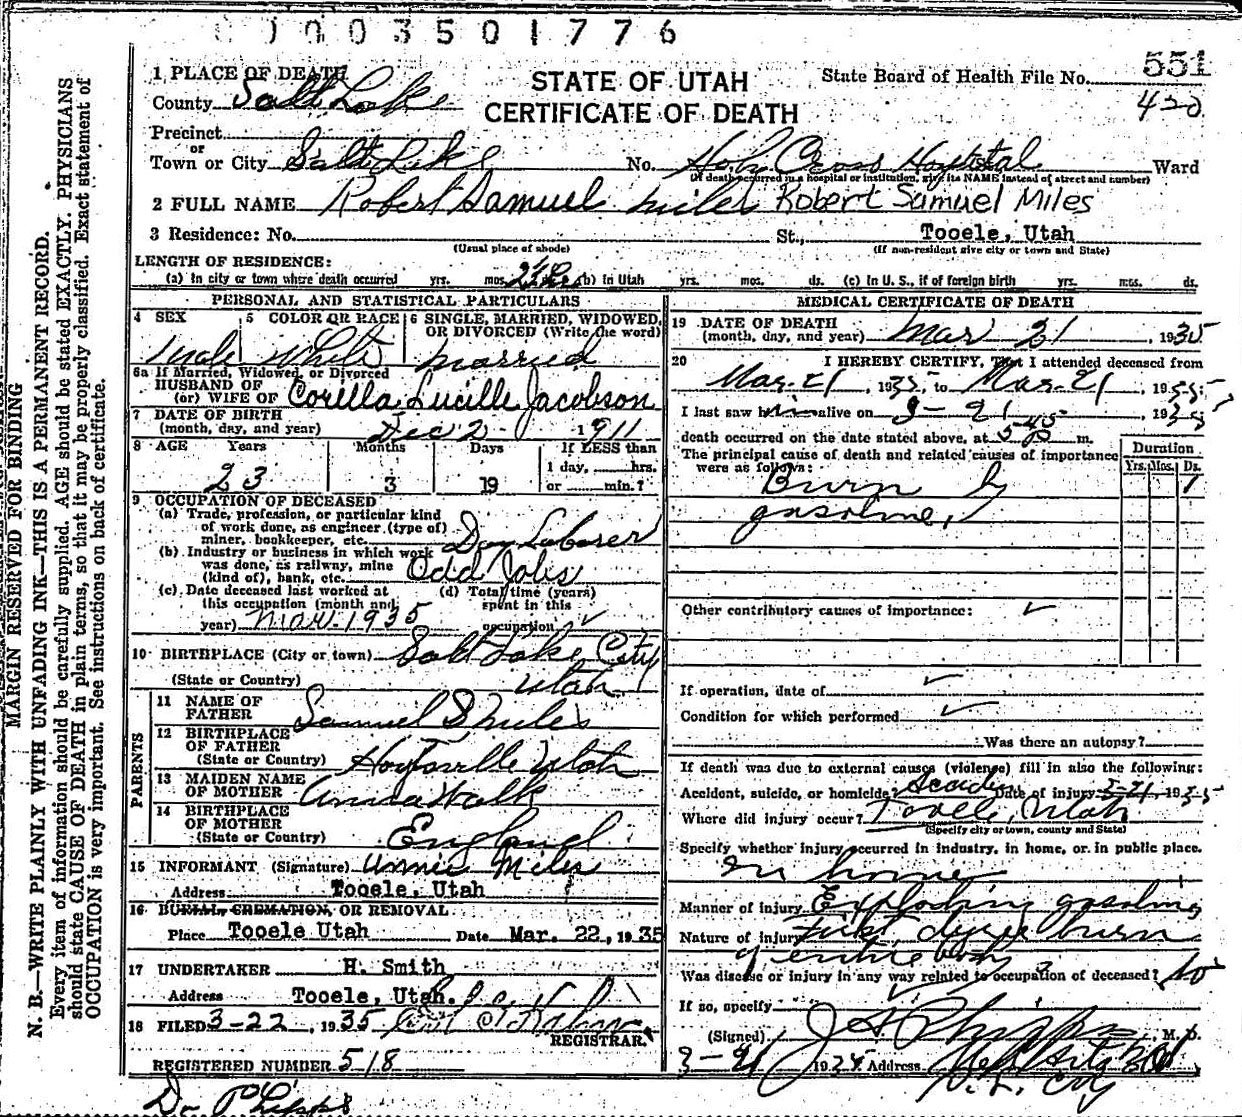 0003501776
551
420
1 PLACE OF DEATH
STATE OF UTAH
CERTIFICATE OF DEATH
State Board of Health File No.
County Salt Lake
Precinct
or
Town or City Salt Lake No. Holy Cross Hospital Ward
(If death occurred in a hospital or institution, give its NAME instead of street and number)
2 FULL NAME Robert Samuel Miles Robert Samuel Miles
3 Residence: No. St., Tooele, Utah
(Usual place of abode) (If non-resident give city or town and State)
LENGTH OF RESIDENCE:
(a) In city or town where death occurred yrs. mos. (b) in Utah yrs. mos. ds. (c) In U.S., if of foreign birth yrs. mos. ds.
PERSONAL AND STATISTICAL PARTICULARS
4 SEX 5 COLOR OR RACE 6 SINGLE, MARRIED, WIDOWED, OR DIVORCED (Write the word)
Male White Married
6a If Married, Widowed, or Divorced
HUSBAND OF
(or) WIFE OF Corilla Lucille Jacobson
7 DATE OF BIRTH
(month, day, and year) Dec 2 1911
8 AGE Years Months Days If LESS than
1 day, hrs.
23 3 19 or min.?
9 OCCUPATION OF DECEASED
(a) Trade, profession, or particular kind
of work done, as engineer (type of)
miner, bookkeeper, etc. Day Laborer
(b) Industry or business in which work
was done, as railway, mine
(kind of), bank, etc. Odd Jobs
(c) Date deceased last worked at
this occupation (month and
year) Mar. 1935
(d) Total time (years)
spent in this
occupation ✓
10 BIRTHPLACE (City or town) Salt Lake City
(State or Country) Utah
PARENTS
11 NAME OF
FATHER Samuel S Miles
12 BIRTHPLACE
OF FATHER
(State or Country) Hoytsville Utah
13 MAIDEN NAME
OF MOTHER Anna Walk
14 BIRTHPLACE
OF MOTHER
(State or Country) England
15 INFORMANT (Signature) Annie Miles
Address Tooele, Utah
16 BURIAL, CREMATION, OR REMOVAL
Place Tooele Utah Date Mar. 22, 1935
17 UNDERTAKER H. Smith
Address Tooele, Utah.
18 FILED 3-22, 1935
REGISTRAR.
REGISTERED NUMBER 518
Dr Phipps
MEDICAL CERTIFICATE OF DEATH
19 DATE OF DEATH
(month, day, and year) Mar 21, 1935
20 I HEREBY CERTIFY, That I attended deceased from
Mar. 21, 1935, to Mar. 21, 1935
I last saw him alive on 3-21, 1935
death occurred on the date stated above, at 5 45 P m.
The principal cause of death and related causes of importance
were as follows:
Duration
Yrs. Mos. Ds.
Burn by 1
gasoline,
Other contributory causes of importance: ✓
If operation, date of ✓
Condition for which performed ✓
Was there an autopsy?
If death was due to external causes (violence) fill in also the following:
Accident, suicide, or homicide? Accident Date of injury 3-21, 1935
Where did injury occur? Tooele, Utah
(Specify city or town, county and State)
Specify whether injury occurred in industry, in home, or in public place.
In home
Manner of injury Exploding gasoline
Nature of injury First degree burn
of entire body
Was disease or injury in any way related to occupation of deceased? No
If so, specify ✓
(Signed) J A Phipps, M. D.
3-21 Address
S. L. City
MARGIN RESERVED FOR BINDING
N. B.—WRITE PLAINLY WITH UNFADING INK—THIS IS A PERMANENT RECORD.
Every item of information should be carefully supplied. AGE should be stated EXACTLY. PHYSICIANS
should state CAUSE OF DEATH in plain terms, so that it may be properly classified. Exact statement of
OCCUPATION is very important. See instructions on back of certificate.